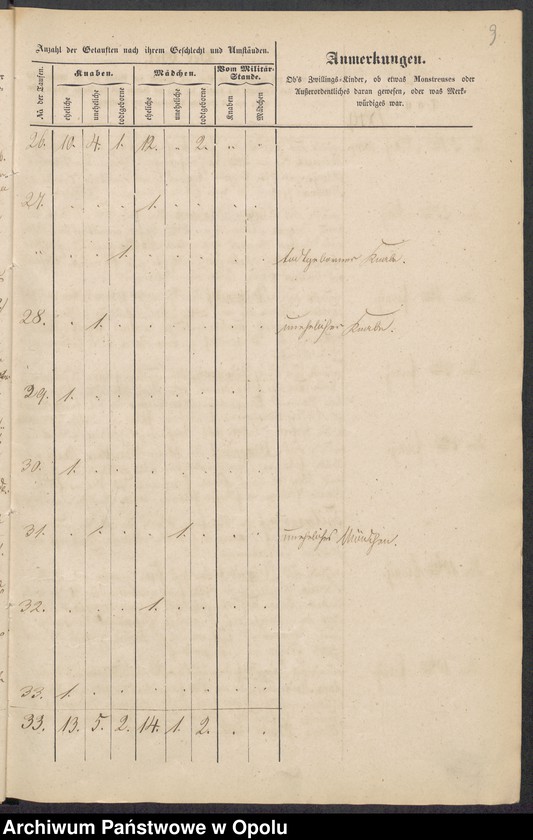 9.
Anzahl der Getauften nach ihrem Geschlecht und Umständen.
Anmerkungen.
Ob's Zwillings-Kinder, ob etwas Monstreuses oder
Außerordentliches daran gewesen, oder was Merk-
würdiges war.
№ der Taufen.
Knaben.
Mädchen.
Vom Militär-
Stande.
eheliche
uneheliche
todtgeborne
eheliche
uneheliche
todtgeborne
Knaben
Mädchen
26. 10. 4. 1. 12. . 2. . .
27. . . . 1. . . . .
" . . 1. . . . . . todtgeborner Knabe.
28. . 1. . . . . . . unehelicher Knabe.
29. 1. . . . . . . .
30. 1. . . . . . . .
31. . . . . 1. . . . uneheliches Mädchen.
32. . . . 1. . . . .
33. 1. . . . . . . .
33. 13. 5. 2. 14. 1. 2. . .
Archiwum Państwowe w Opolu